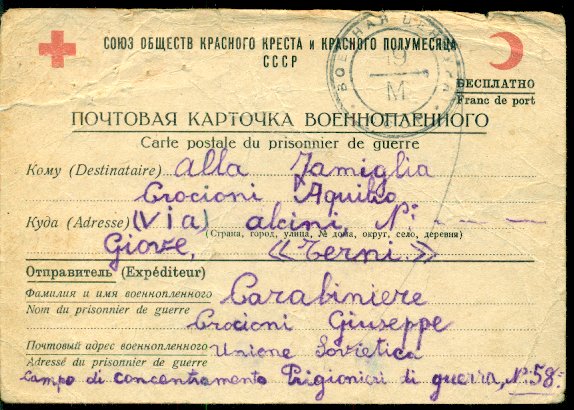 СОЮЗ ОБЩЕСТВ КРАСНОГО КРЕСТА и КРАСНОГО ПОЛУМЕСЯЦА
СССР
ВОЕННАЯ ЦЕНЗУРА
19
М.
БЕСПЛАТНО
Franc de port
ПОЧТОВАЯ КАРТОЧКА ВОЕННОПЛЕННОГО
Carte postale du prisonnier de guerre
Кому (Destinataire) alla Famiglia
Crocioni Aquilio
Куда (Adresse) (Via) alcini, N:
(Страна, город, улица, № дома, округ, село, деревня)
Giove, «Terni.»
Отправитель (Expéditeur)
Фамилия и имя военнопленного Carabiniere
Nom du prisonnier de guerre
Crocioni Giuseppe
Почтовый адрес военнопленного Unione Sovietica
Adressé du prisonnier de guerre
Campo di concentramento Prigionieri di guerra, N:58=